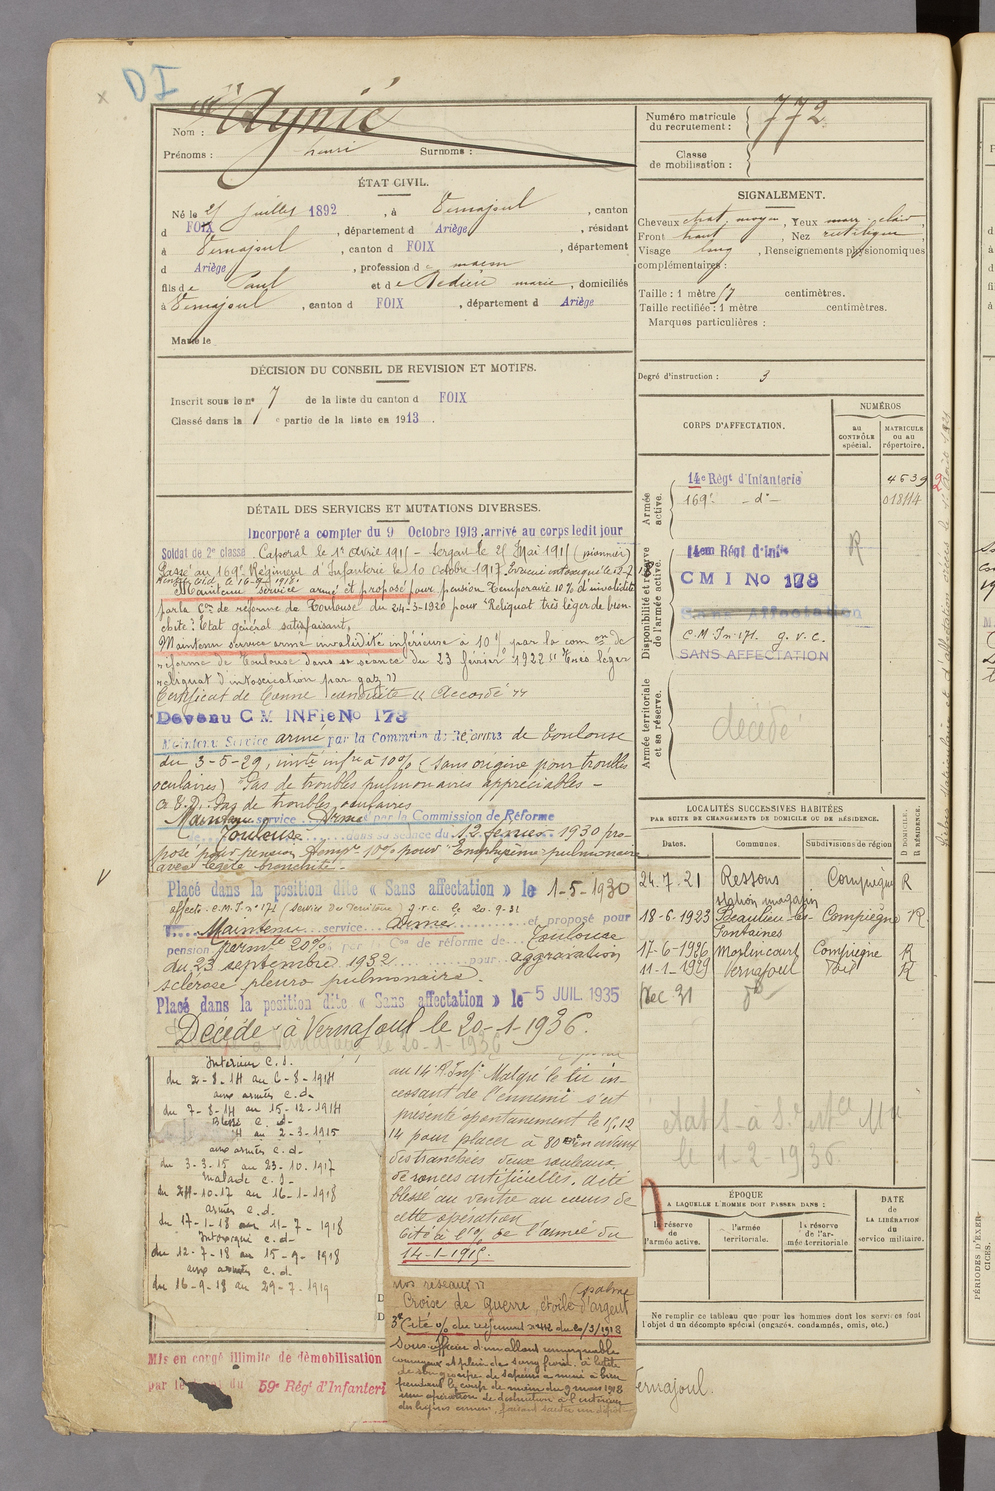 DI
Nom : Aynié
Prénoms : henri Surnoms :
Numéro matricule du recrutement : 772
Classe de mobilisation :
ÉTAT CIVIL.
Né le 25 juillet 1892, à Vernajoul, canton
d FOIX, département d Ariège, résidant
à Vernajoul, canton d FOIX, département
d Ariège, profession de maçon
fils de Paul et de marie, domiciliés
à Vernajoul, canton d FOIX, département d Ariège
Marié le
SIGNALEMENT.
Cheveux chat. moyen, Yeux marr. clair
Front haut, Nez rectiligne,
Visage long, Renseignements physionomiques
complémentaires :
Taille : 1 mètre 57 centimètres.
Taille rectifiée : 1 mètre centimètres.
Marques particulières :
Degré d'instruction : 3
DÉCISION DU CONSEIL DE REVISION ET MOTIFS.
Inscrit sous le nº 7 de la liste du canton d FOIX
Classé dans la 1 e partie de la liste en 1913.
DÉTAIL DES SERVICES ET MUTATIONS DIVERSES.
Incorporé a compter du 9 Octobre 1913. arrivé au corps ledit jour
Soldat de 2e classe Caporal le 1er avril 1915 - Sergent le 25 Mai 1915 (pionnier)
Passé au 169e Régiment d'Infanterie le 10 Octobre 1917
Maintenu service armé et proposé pour pension Temporaire 10% d'invalidité
par la Con de réforme de Toulouse du 24-3-1920 pour "Reliquat très léger de bron-
chite : Etat général satisfaisant,
Maintenu service armé invalidité inférieure à 10% par la com on de
réforme de Toulouse dans sa séance du 23 février 1922 "Très léger
reliquat d'intoxication par gaz"
Certificat de bonne conduite "Accordé"
Devenu C M INFie No 173
Maintenu Service armé par la Commsion de Réforme de Toulouse
du 3-5-29, invté infre à 10% (sans origine pour troubles
oculaires) Pas de troubles pulmonaires appréciables -
Pas de troubles oculaires
Maintenu service Armé par la Commission de Réforme
de Toulouse dans sa séance du 12 1930 pro-
posé pour pension temp. 10% pour Emphysème pulmonaire
avec légère bronchite -
Placé dans la position dite « Sans affectation » le 1-5-1930
affecté C.M.I. nº 171 (Service du Territoire) g.v.c. le 20-9-31
Maintenu service Armé et proposé pour
pension permte 20% par Con de réforme de Toulouse
du 23 septembre 1932 pour aggravation
sclérose pleuro pulmonaire.
Placé dans la position dite « Sans affectation » le -5 JUIL. 1935
Décédé à Vernajoul le 20-1-1936.
Interieur C.S.
du 2-8-14 au 6-8-1914
aux armées C.d.
du 7-8-14 au 15-12-1914
Blessé C. d-
au 2-3-1915
aux armées C-d-
du 3-3-15 au 23-10-1917
malade C.S-
du 24-10-17 au 16-1-1918
armées C.d.
du 17-1-18 au 11-7-1918
Intoxiqué C-d-
du 12-7-18 au 15-9-1918
aux armées C.d.
du 16-9-18 au 29-7-1919
au 14e R. Inf. Malgré le tir in-
cessant de l'ennemi s'est
présenté spontanement le 15.12
14 pour placer à 80m en avant
des tranchées deux rouleaux
de ronces artificielles. a été
blessé au ventre au cours de
cette opération
Cité à l'o/. de l'armée du
14-1-1915.
nos reseaux" (palme
Croix de guerre, étoile d'argent
3e Cité o/. du régiment nº 412 du 20/3/1918
Sous-officier d'un allant remarquable
courageux et plein de sang froid, à la tête
de son groupe de sapeurs a mené à bien
pendant le coup de main du 9 mars 1918
une opération de destruction à l'intérieur
des lignes ennemies, faisant sauter un dépôt
Mis en congé illimité de démobilisation
par le du 59e Régt d'Infanteri
Vernajoul.
CORPS D'AFFECTATION.
NUMÉROS
AU CONTRÔLE spécial.
MATRICULE ou au répertoire.
Armée active.
14e Régt d'Infanterie 4539
169e -d°- 018114
Disponibilité et réserve de l'armée active.
14em Régt d'Infie
R
C M I No 173
Sans Affectation
C.M.I nº 171. g.v.c.
SANS AFFECTATION
Armée territoriale et sa réserve.
décédé
LOCALITÉS SUCCESSIVES HABITÉES
PAR SUITE DE CHANGEMENTS DE DOMICILE OU DE RÉSIDENCE.
Dates. Communes. Subdivisions de région D DOMICILE. R RÉSIDENCE.
24.7.21 Ressons Compiegne R
station magasin
18-6-1923 Beaulieu-les- Compiègne R.
Fontaines
17-6-1926 Morlincourt Compiègne R
11-1-1929 Vernajoul Foix R
Dec. 31
le 1-2-1936.
ÉPOQUE
A LAQUELLE L'HOMME DOIT PASSER DANS :
la réserve de l'armée active.
l'armée territoriale.
la réserve de l'ar- mée territoriale.
DATE de LA LIBÉRATION du service militaire.
Ne remplir ce tableau que pour les hommes dont les services font
l'objet d'un décompte spécial (engagés, condamnés, omis, etc.)
PÉRIODES D'EXER-
CICES.